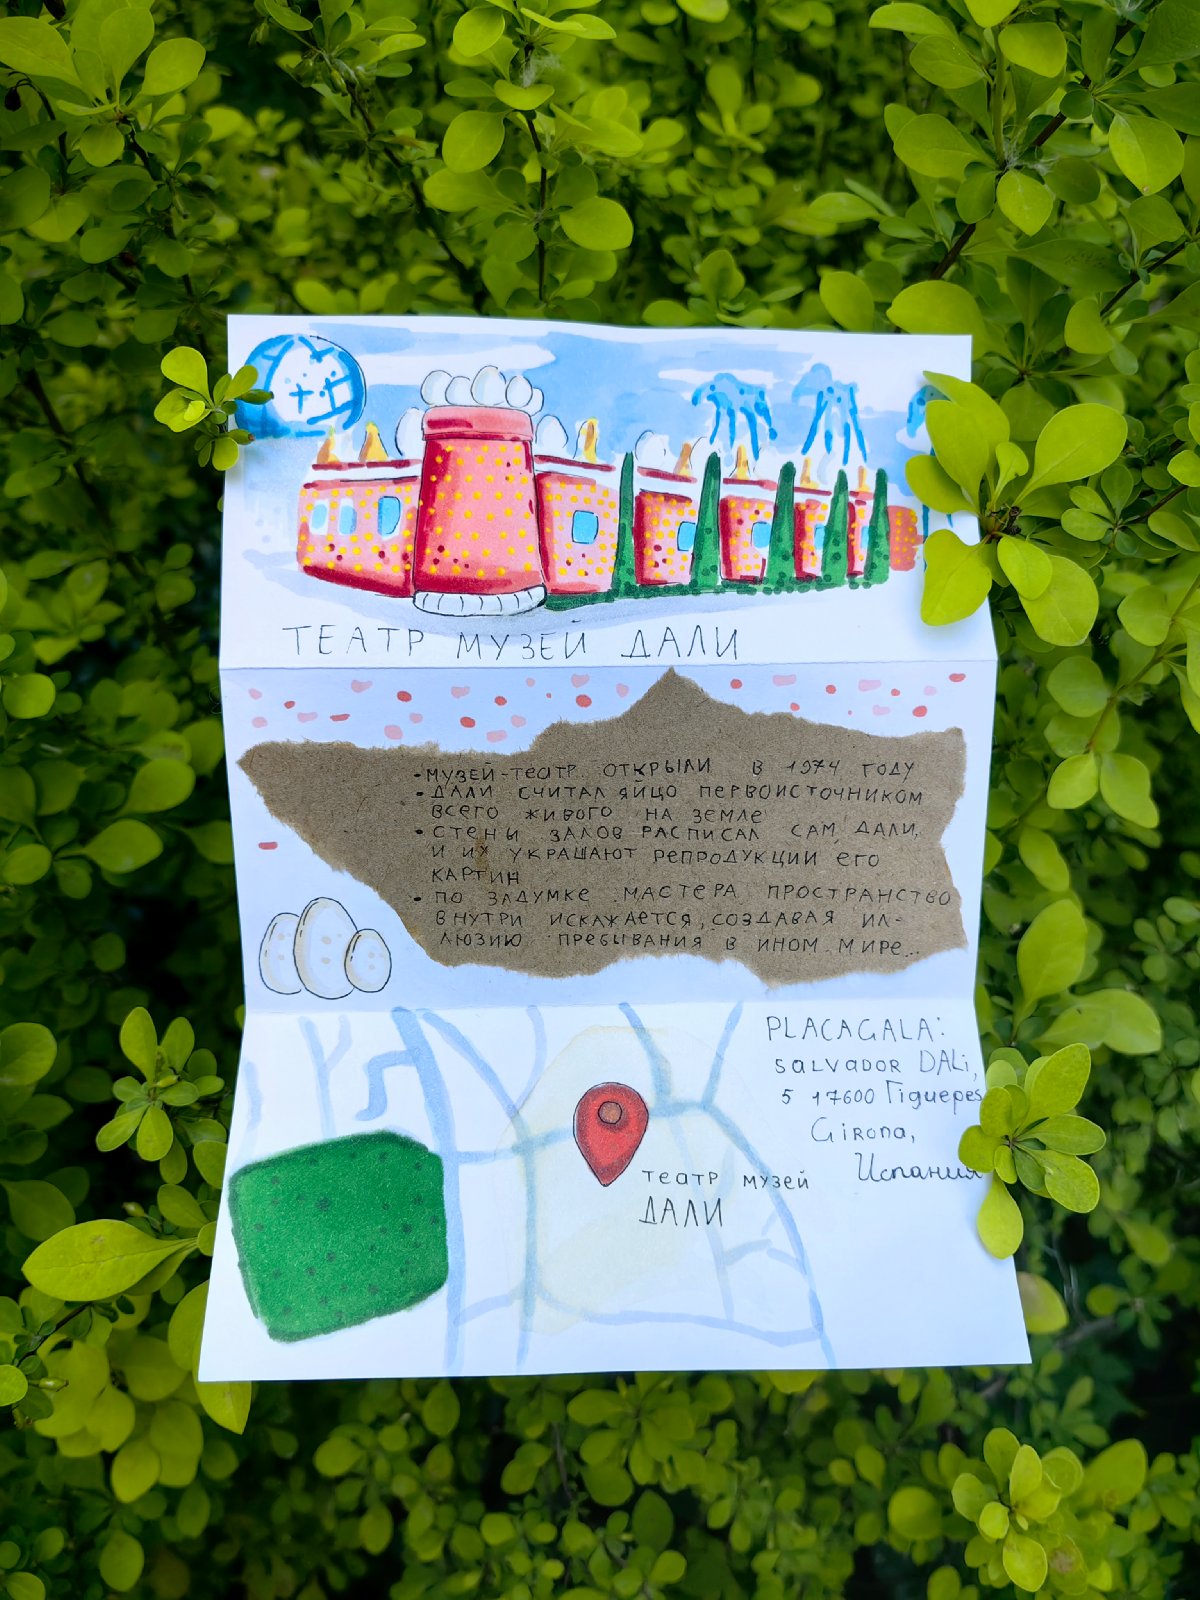 ТЕАТР МУЗЕЙ ДАЛИ
• МУЗЕЙ-ТЕАТР ОТКРЫЛИ В 1974 ГОДУ
• ДАЛИ СЧИТАЛ ЯЙЦО ПЕРВОИСТОЧНИКОМ
ВСЕГО ЖИВОГО НА ЗЕМЛЕ
• СТЕНЫ ЗАЛОВ РАСПИСАЛ САМ ДАЛИ,
И ИХ УКРАШАЮТ РЕПРОДУКЦИИ ЕГО
КАРТИН
• ПО ЗАДУМКЕ МАСТЕРА ПРОСТРАНСТВО
ВНУТРИ ИСКАЖАЕТСЯ, СОЗДАВАЯ ИЛ-
ЛЮЗИЮ ПРЕБЫВАНИЯ В ИНОМ МИРЕ...
PLACAGALA:
SALVADOR DALi,
5 17600 Figueres
Girona,
Испания
ТЕАТР МУЗЕЙ
ДАЛИ